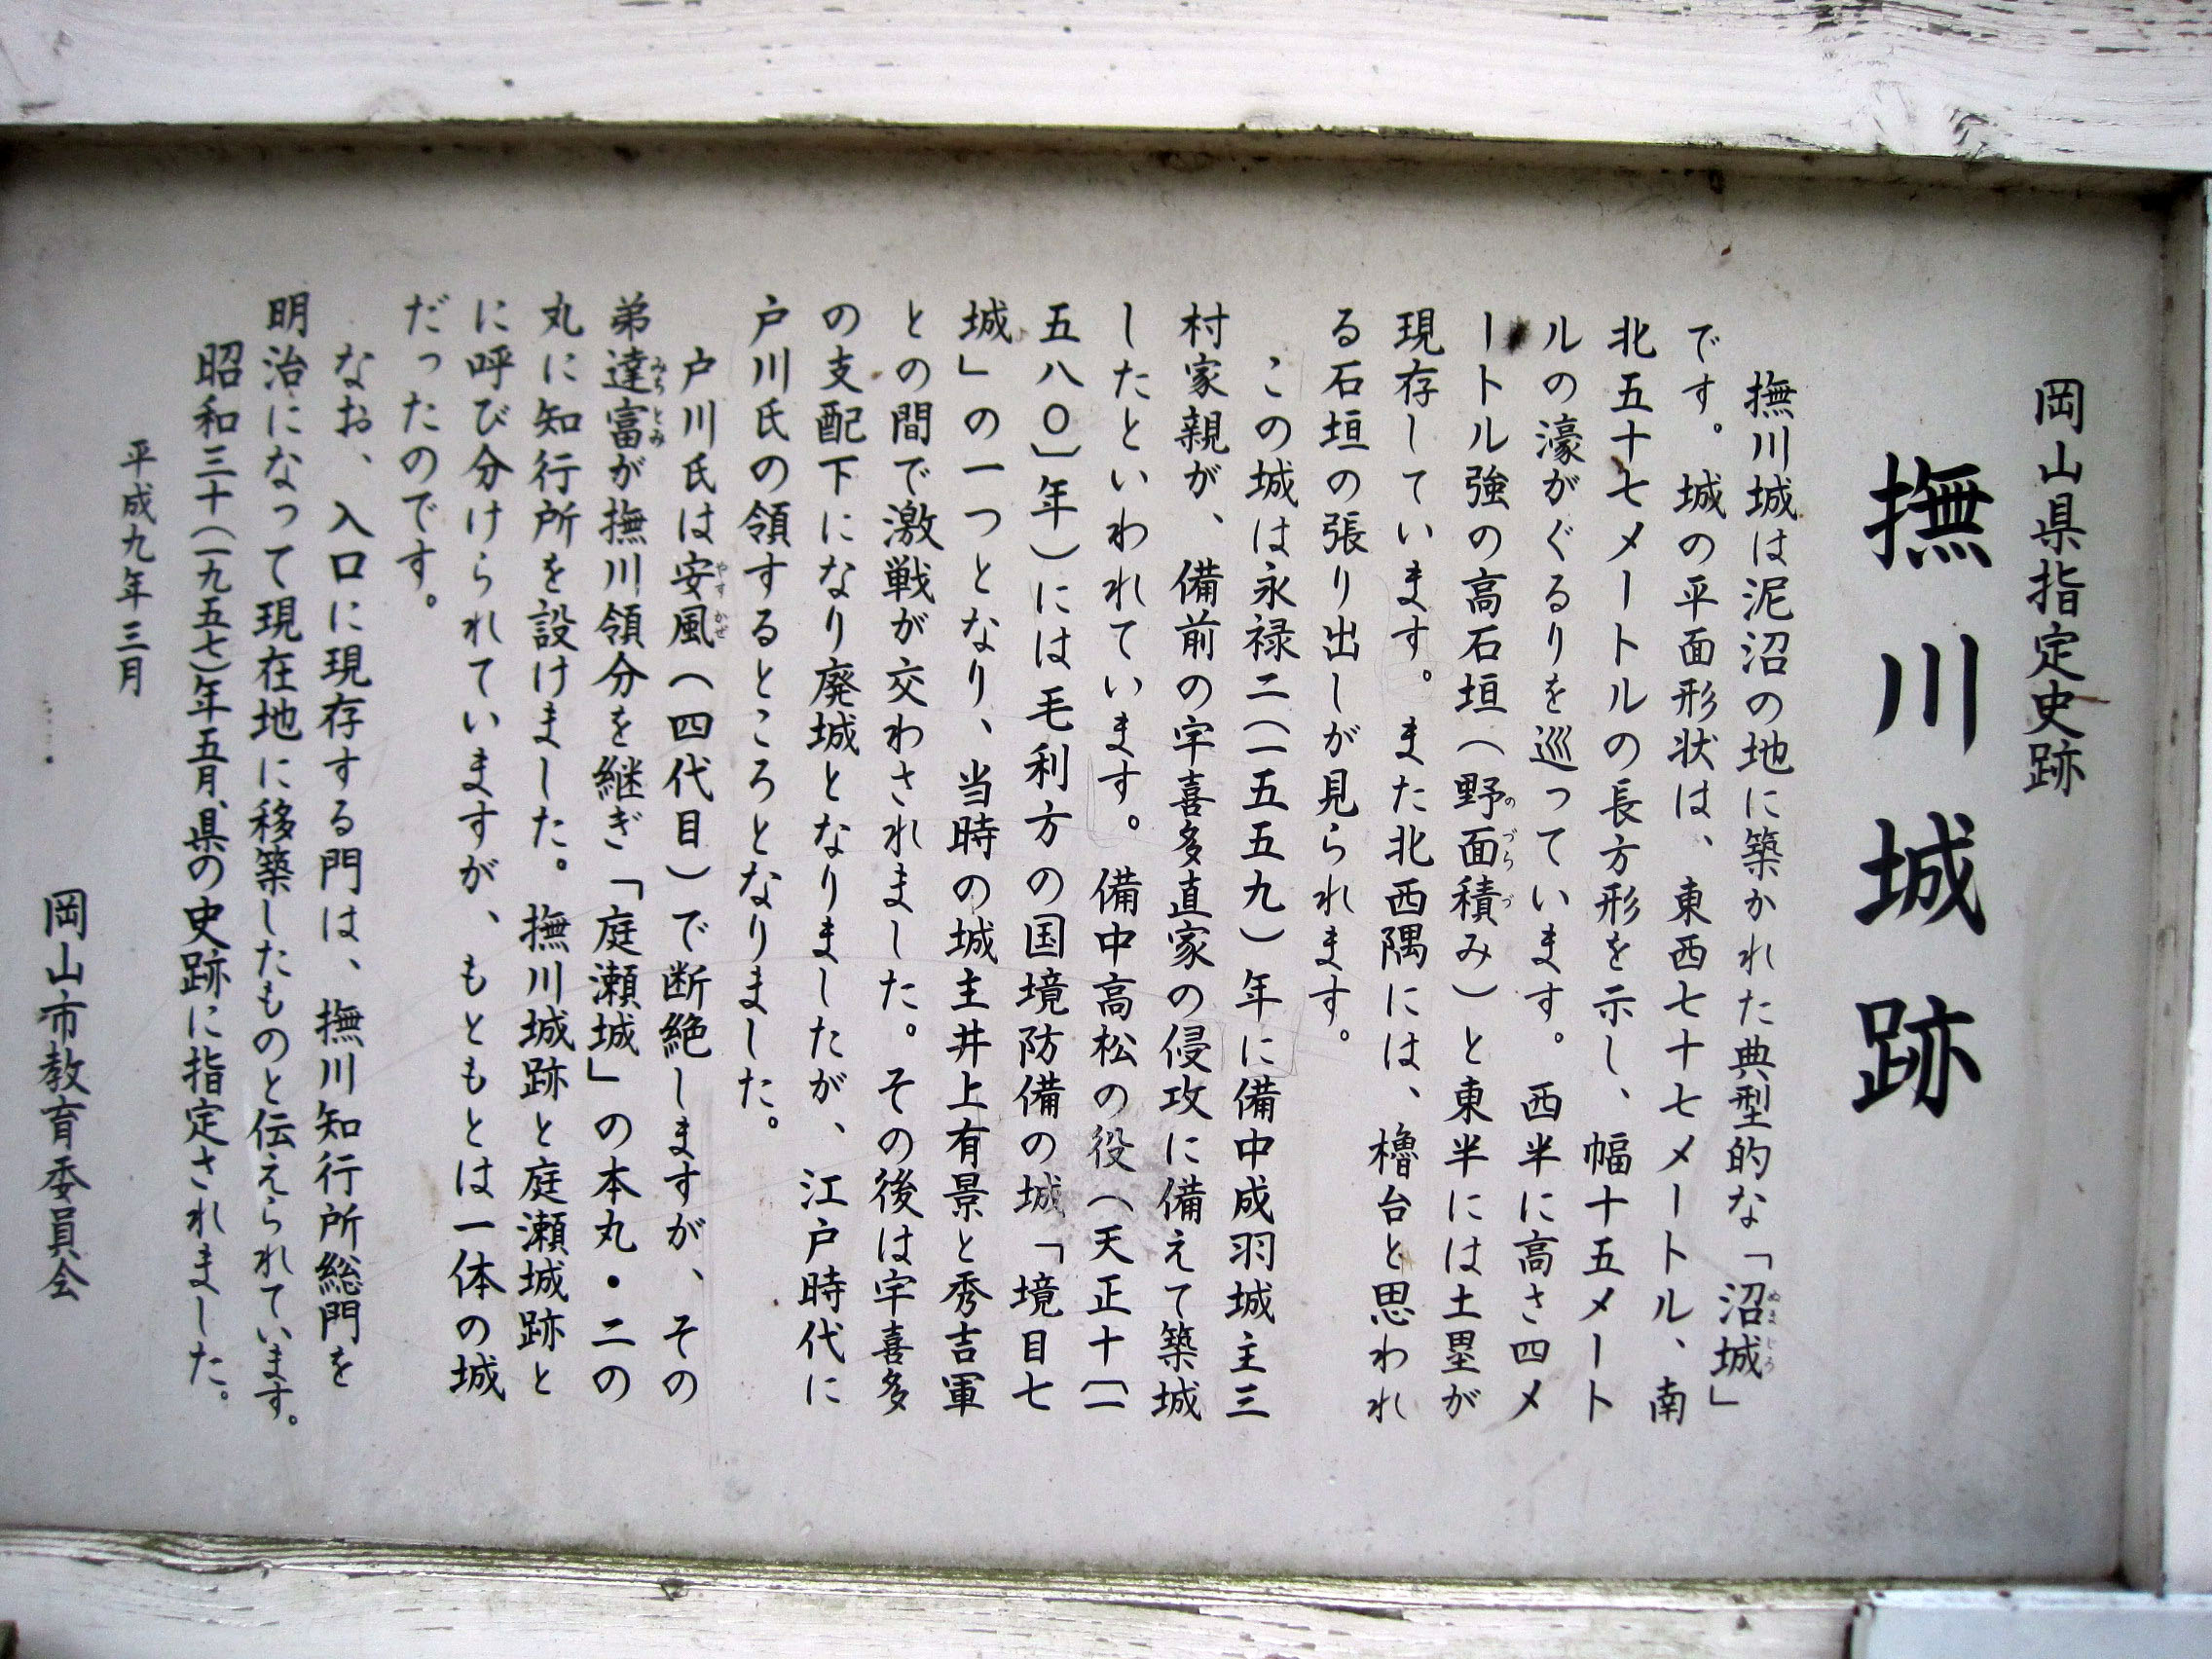 岡山県指定史跡
撫川城跡
撫川城は泥沼の地に築かれた典型的な「沼城」
です。城の平面形状は、東西七十七メートル、南
北五十七メートルの長方形を示し、幅十五メート
ルの濠がぐるりを巡っています。西半に高さ四メ
ートル強の高石垣（野面積み）と東半には土塁が
現存しています。また北西隅には、櫓台と思われ
る石垣の張り出しが見られます。
この城は永禄二（一五五九）年に備中成羽城主三
村家親が、備前の宇喜多直家の侵攻に備えて築城
したといわれています。備中高松の役（天正十〔一
五八〇〕年）には毛利方の国境防備の城「境目七
城」の一つとなり、当時の城主井上有景と秀吉軍
との間で激戦が交わされました。その後は宇喜多
の支配下になり廃城となりましたが、江戸時代に
戸川氏の領するところとなりました。
戸川氏は安風（四代目）で断絶しますが、その
弟達富が撫川領分を継ぎ「庭瀬城」の本丸・二の
丸に知行所を設けました。撫川城跡と庭瀬城跡と
に呼び分けられていますが、もともとは一体の城
だったのです。
なお、入口に現存する門は、撫川知行所総門を
明治になって現在地に移築したものと伝えられています。
昭和三十（一九五七）年五月、県の史跡に指定されました。
平成九年三月
岡山市教育委員会